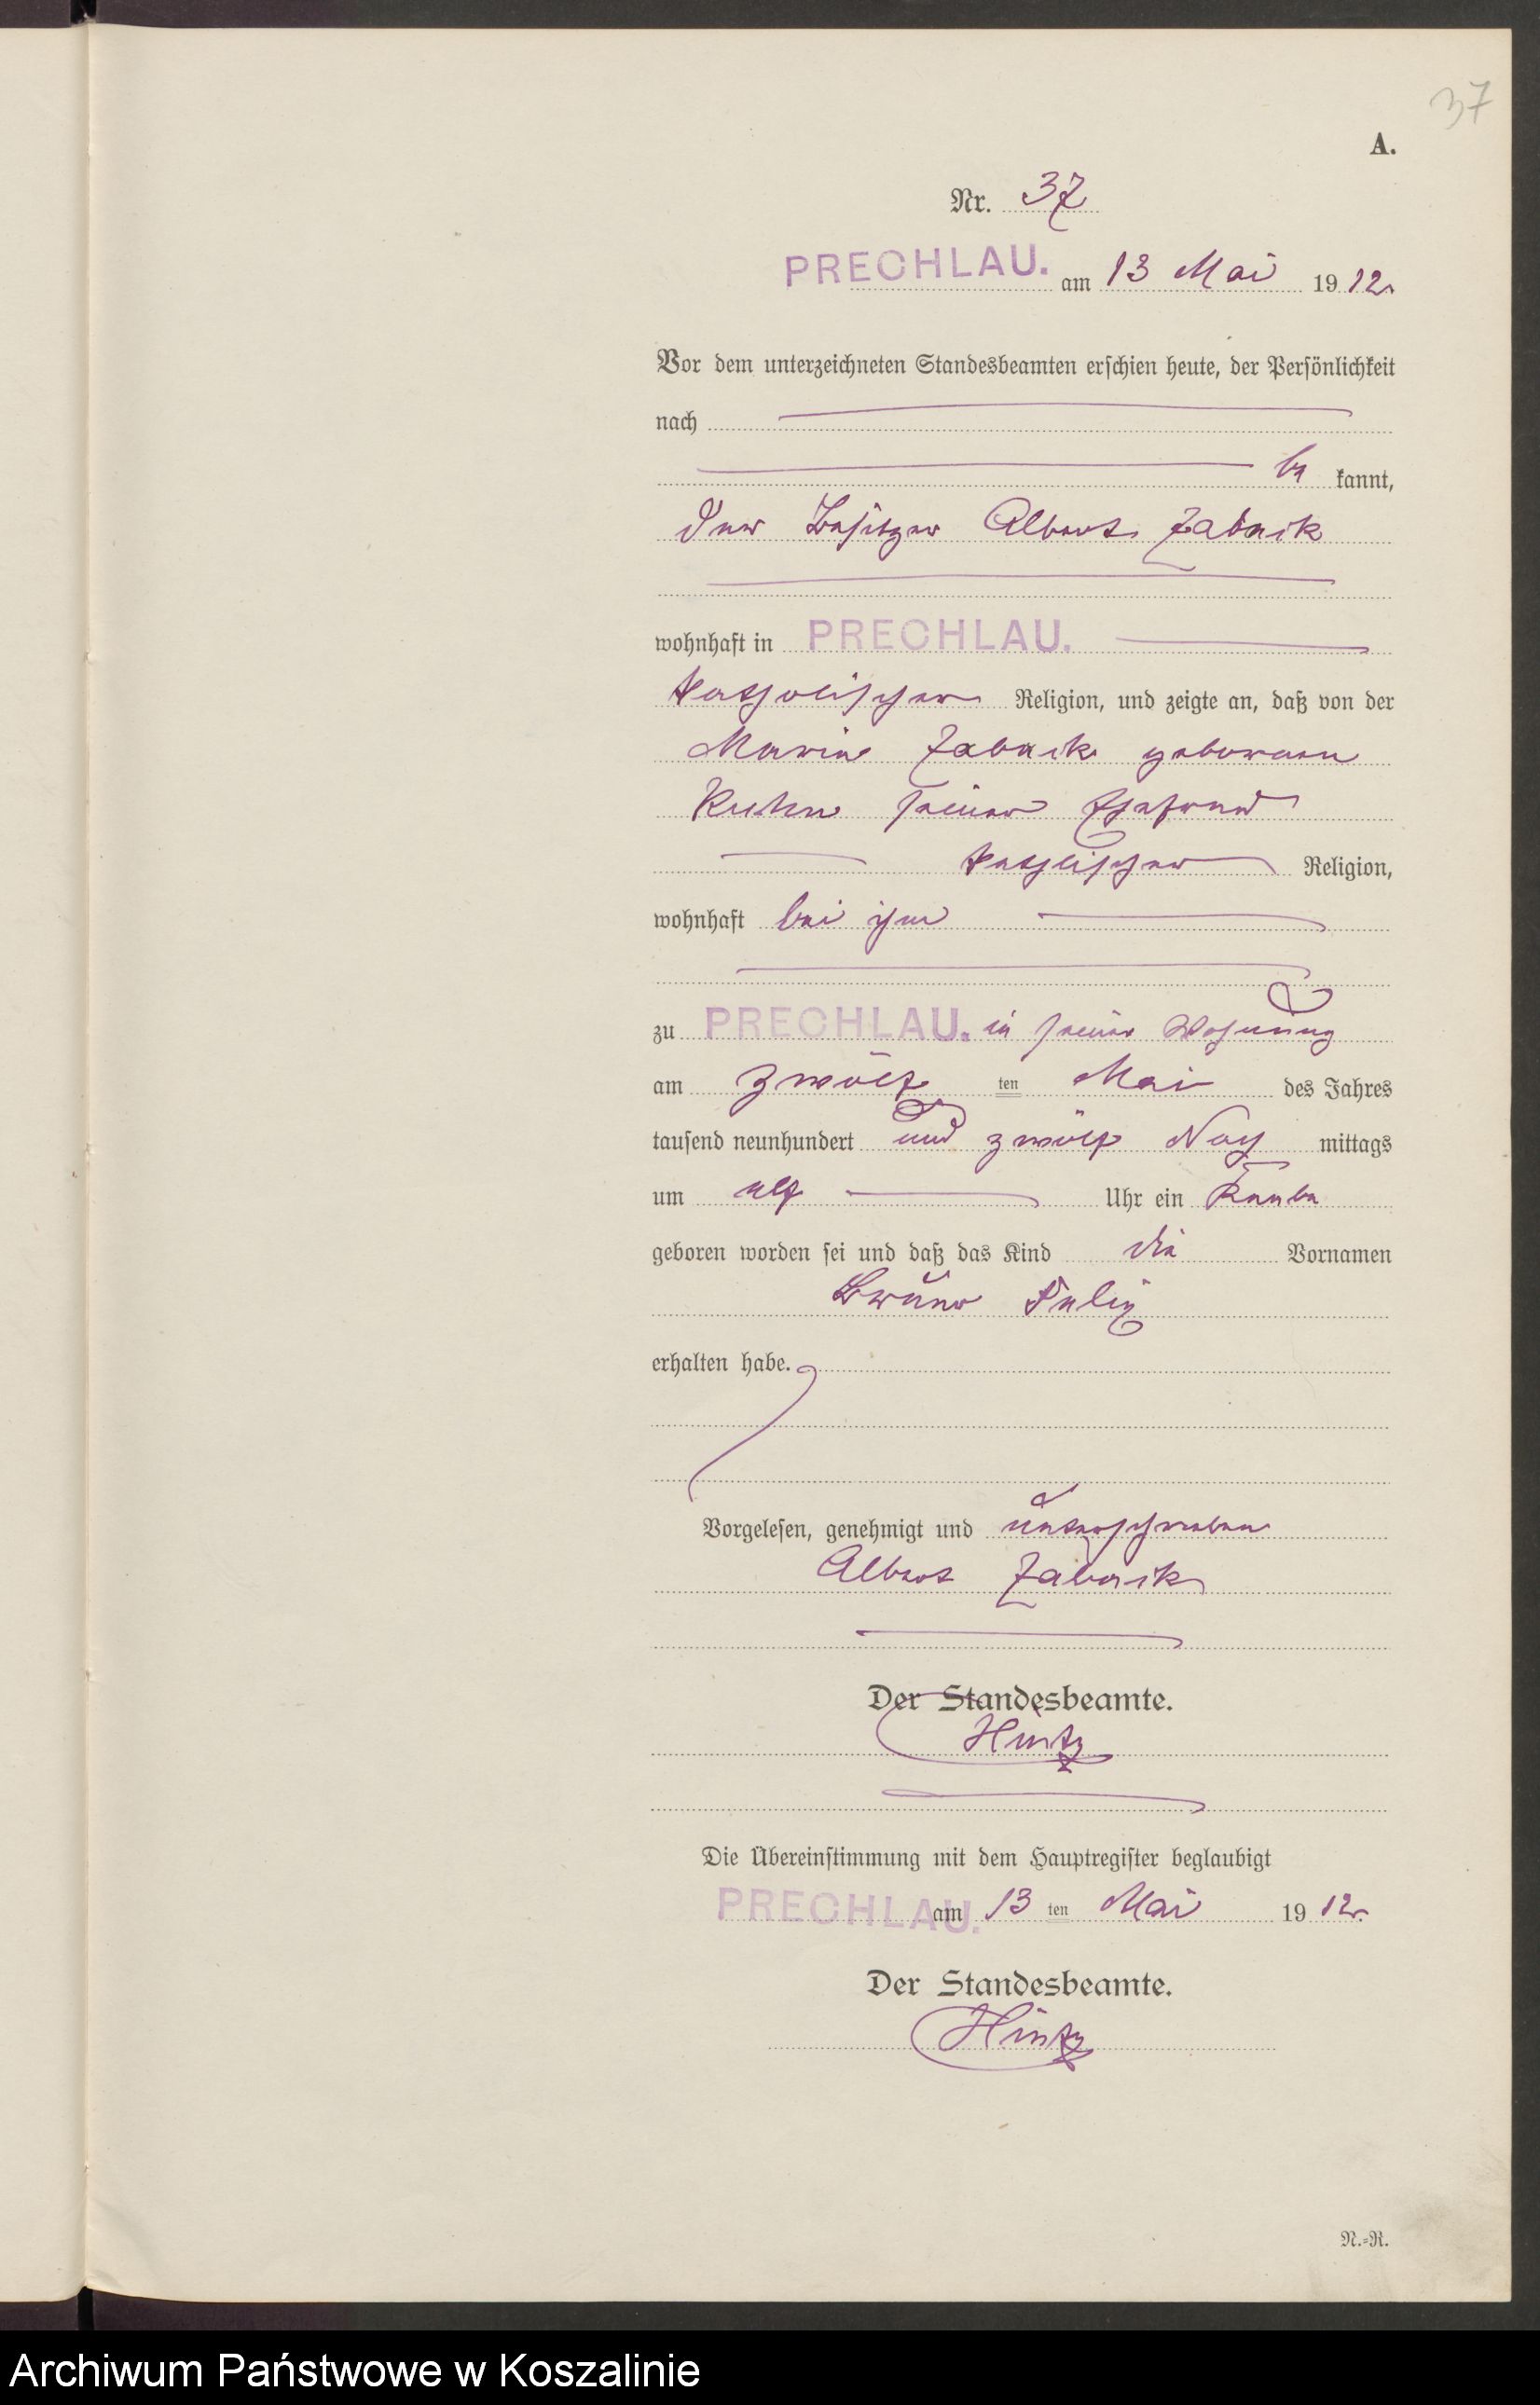 37
A.
Nr. 37
PRECHLAU. am 13 Mai 1912.
Vor dem unterzeichneten Standesbeamten erschien heute, der Persönlichkeit
nach
be kannt,
Der Besitzer Albert Zabnik
wohnhaft in PRECHLAU.
katholischer Religion, und zeigte an, daß von der
Maria Zabnik geborenen
Kuhn seiner Ehefrau
katholischer Religion,
wohnhaft bei ihm
zu PRECHLAU. in seiner Wohnung
am zwölf ten Mai des Jahres
tausend neunhundert und zwölf Nach mittags
um elf Uhr ein Knabe
geboren worden sei und daß das Kind die Vornamen
Bruno
erhalten habe.
Vorgelesen, genehmigt und unterschrieben
Albert Zabnik
Der Standesbeamte.
Hintz
Die Übereinstimmung mit dem Hauptregister beglaubigt
PRECHLAU. am 13 ten Mai 1912.
Der Standesbeamte.
Hintz
N.=R.
Archiwum Państwowe w Koszalinie